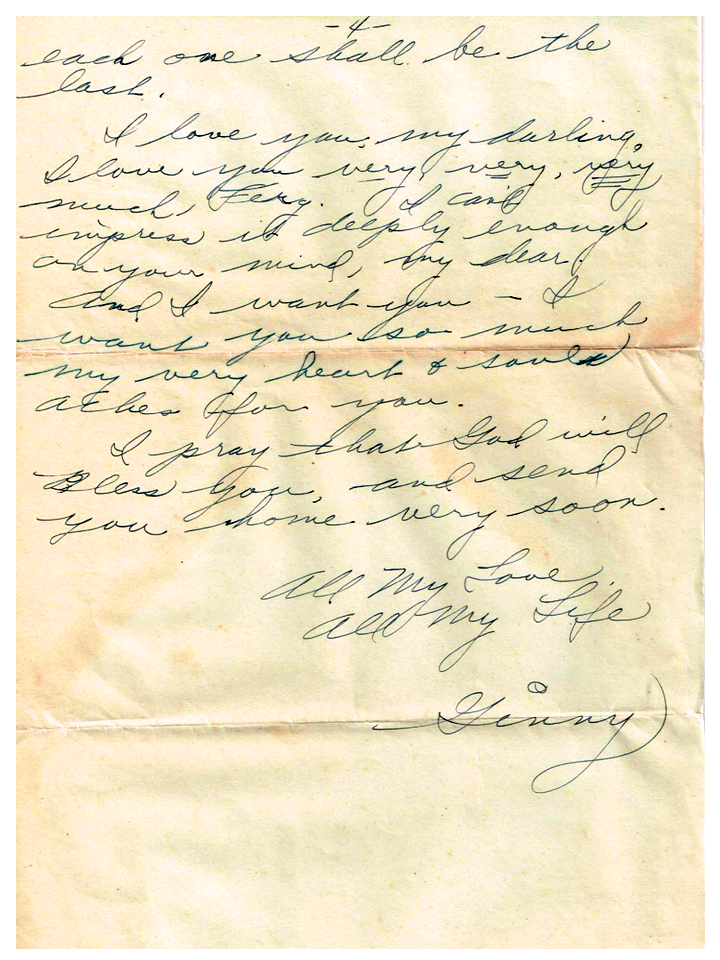 -4-
each one shall be the
last.
I love you, my darling,
I love you very, very, very
much, Ferg. I can't
impress it deeply enough
on your mind, my dear.
And I want you - I
want you so much
my very heart & soul
aches for you.
I pray that God will
Bless you, and send
you home very soon.
All My Love,
All My Life
Ginny